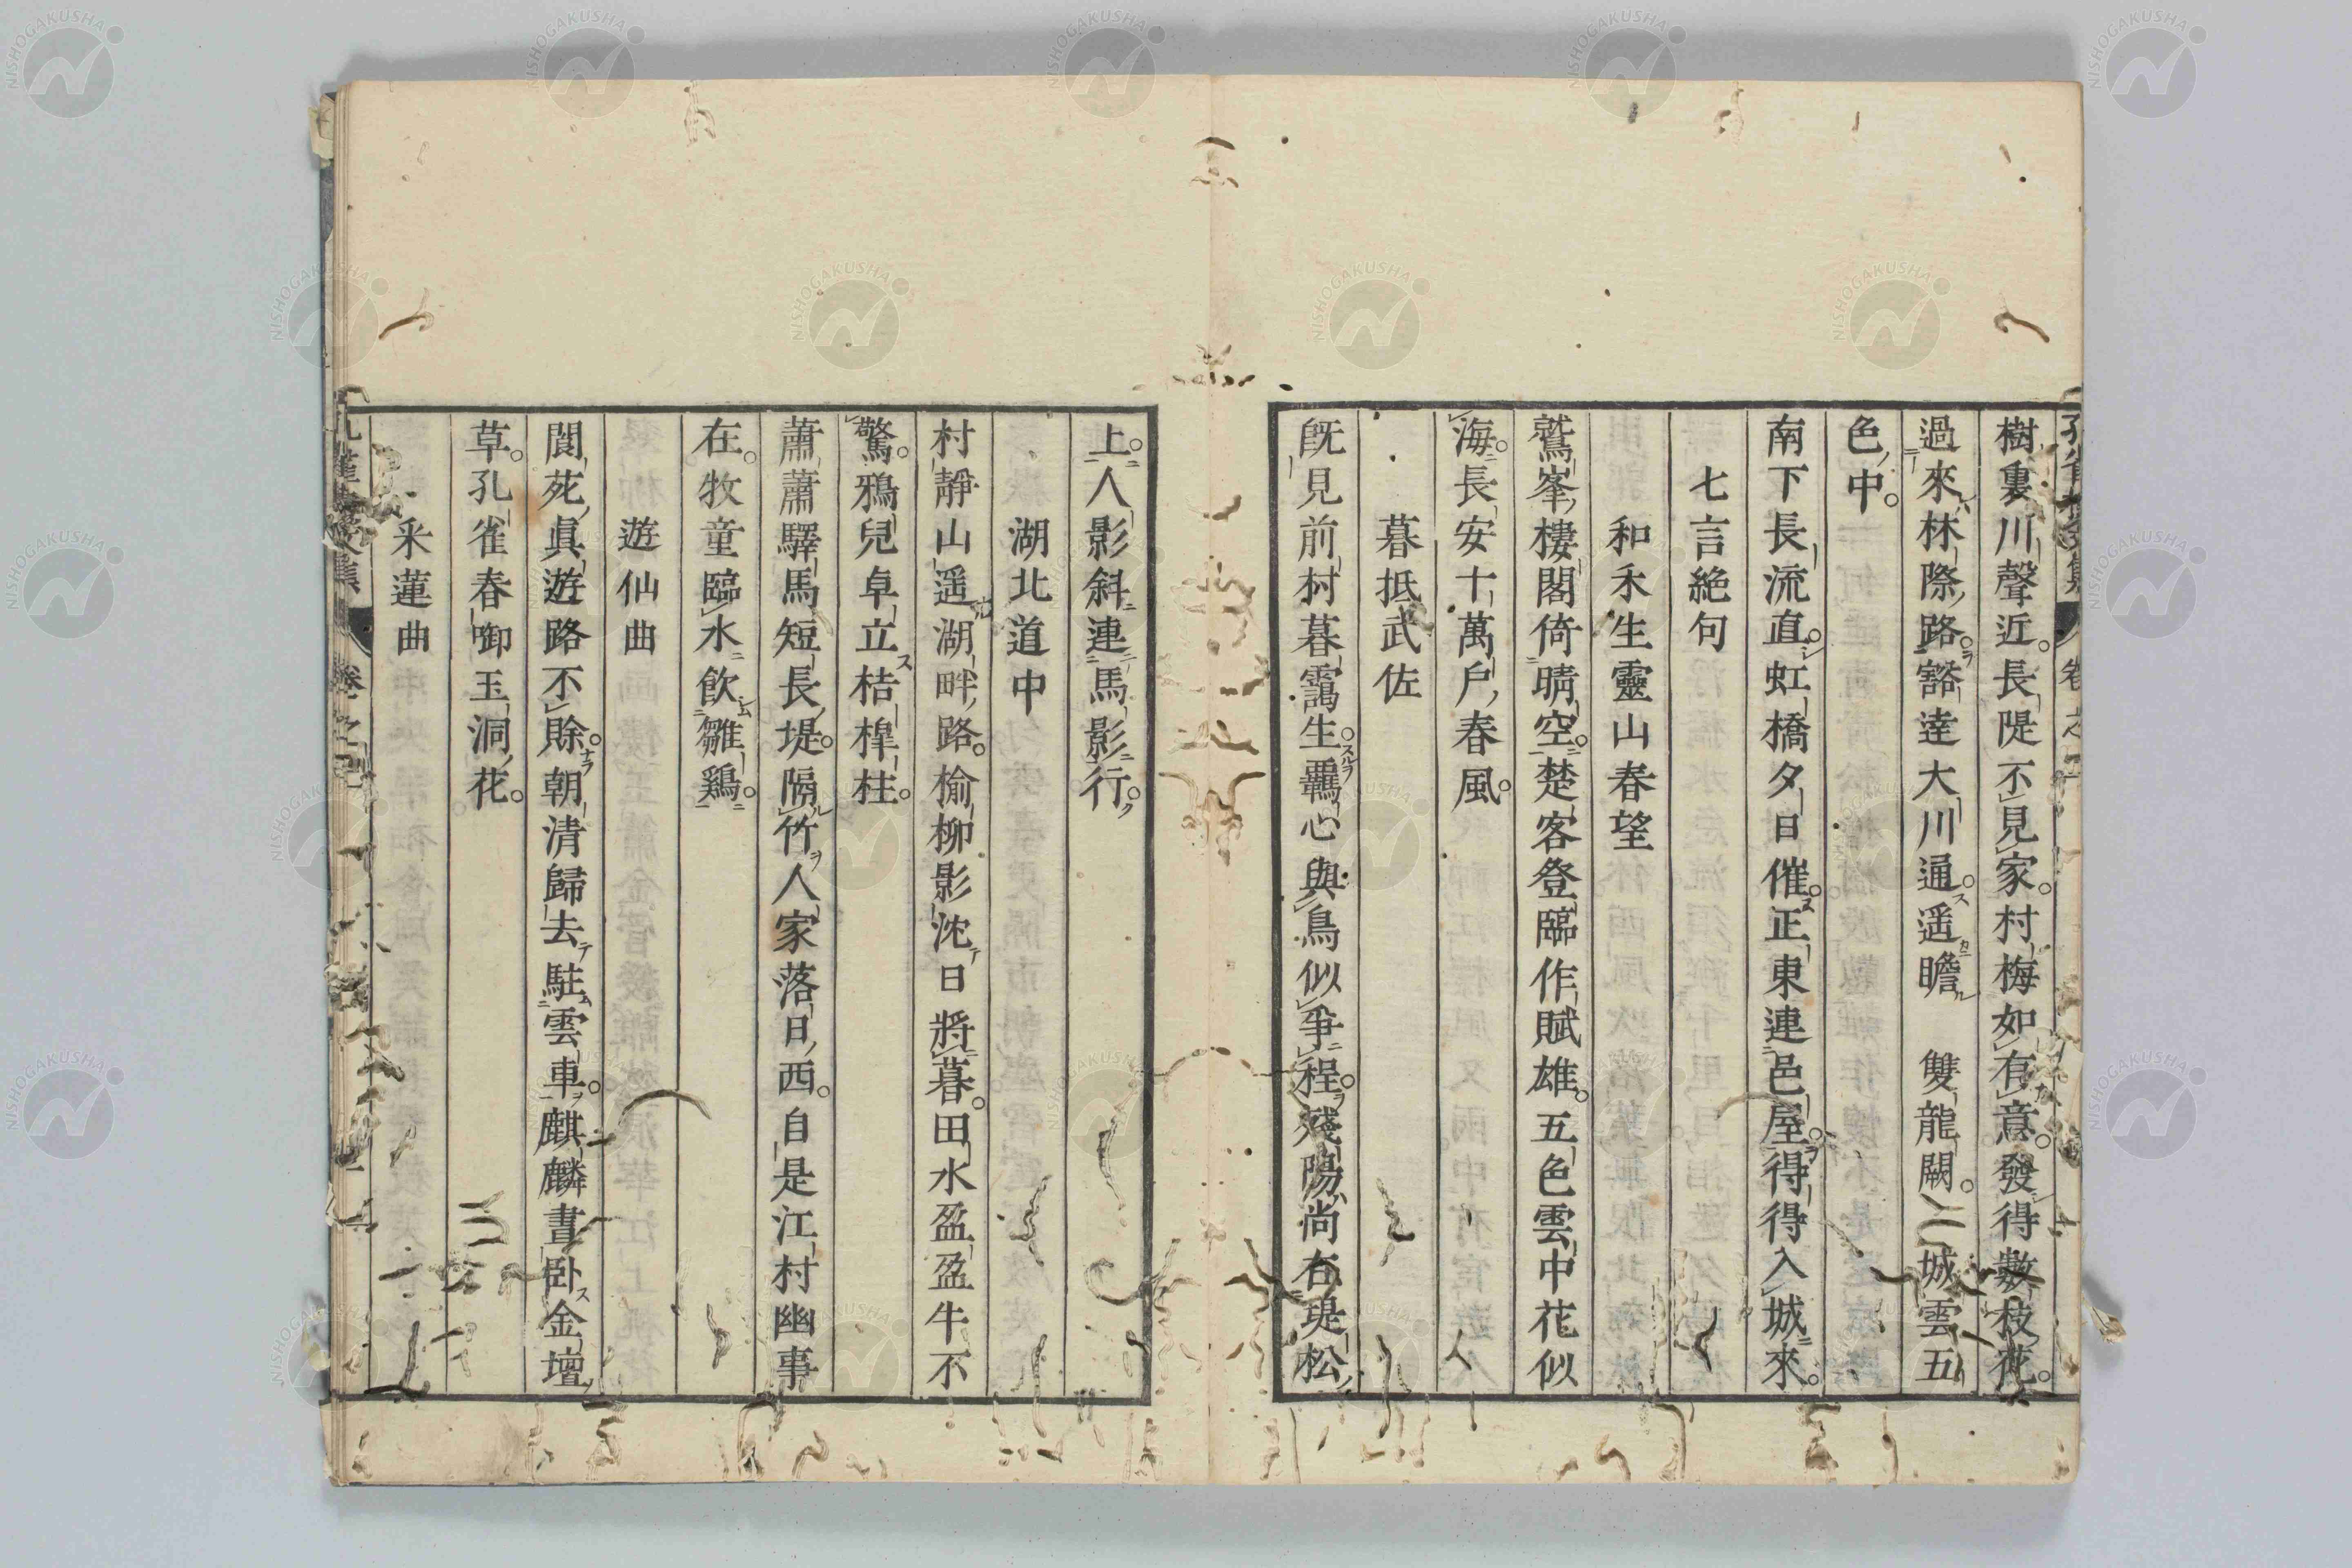 樹裏川聲近。長隄不見家。村梅如有意。發得數枝花。
過來林際路。豁達大川通。遥瞻 雙龍闕。二城雲五
色中。
南下長流直。虹橋夕日催。正東連邑屋。得得入城來。
七言絶句
和禾生靈山春望
鷲峯樓閣倚晴空。楚客登臨作賦雄。五色雲中花似
海。長安十萬戶春風。
暮抵武佐
既見前村暮靄生。羈心與鳥似爭程。殘陽尚在堤松
上。人影斜連馬影行。
湖北道中
村靜山遥湖畔路。楡柳影沈日將暮。田水盈盈牛不
驚。鴉兒卓立桔槹柱。
蕭蕭驛馬短長堤。隔竹人家落日西。自是江村幽事
在。牧童臨水飲雛鷄。
遊仙曲
閬苑眞遊路不賖。朝清歸去駐雲車。麒麟晝卧金壇
草。孔雀春啣玉洞花。
采蓮曲
NISHOGAKUSHA